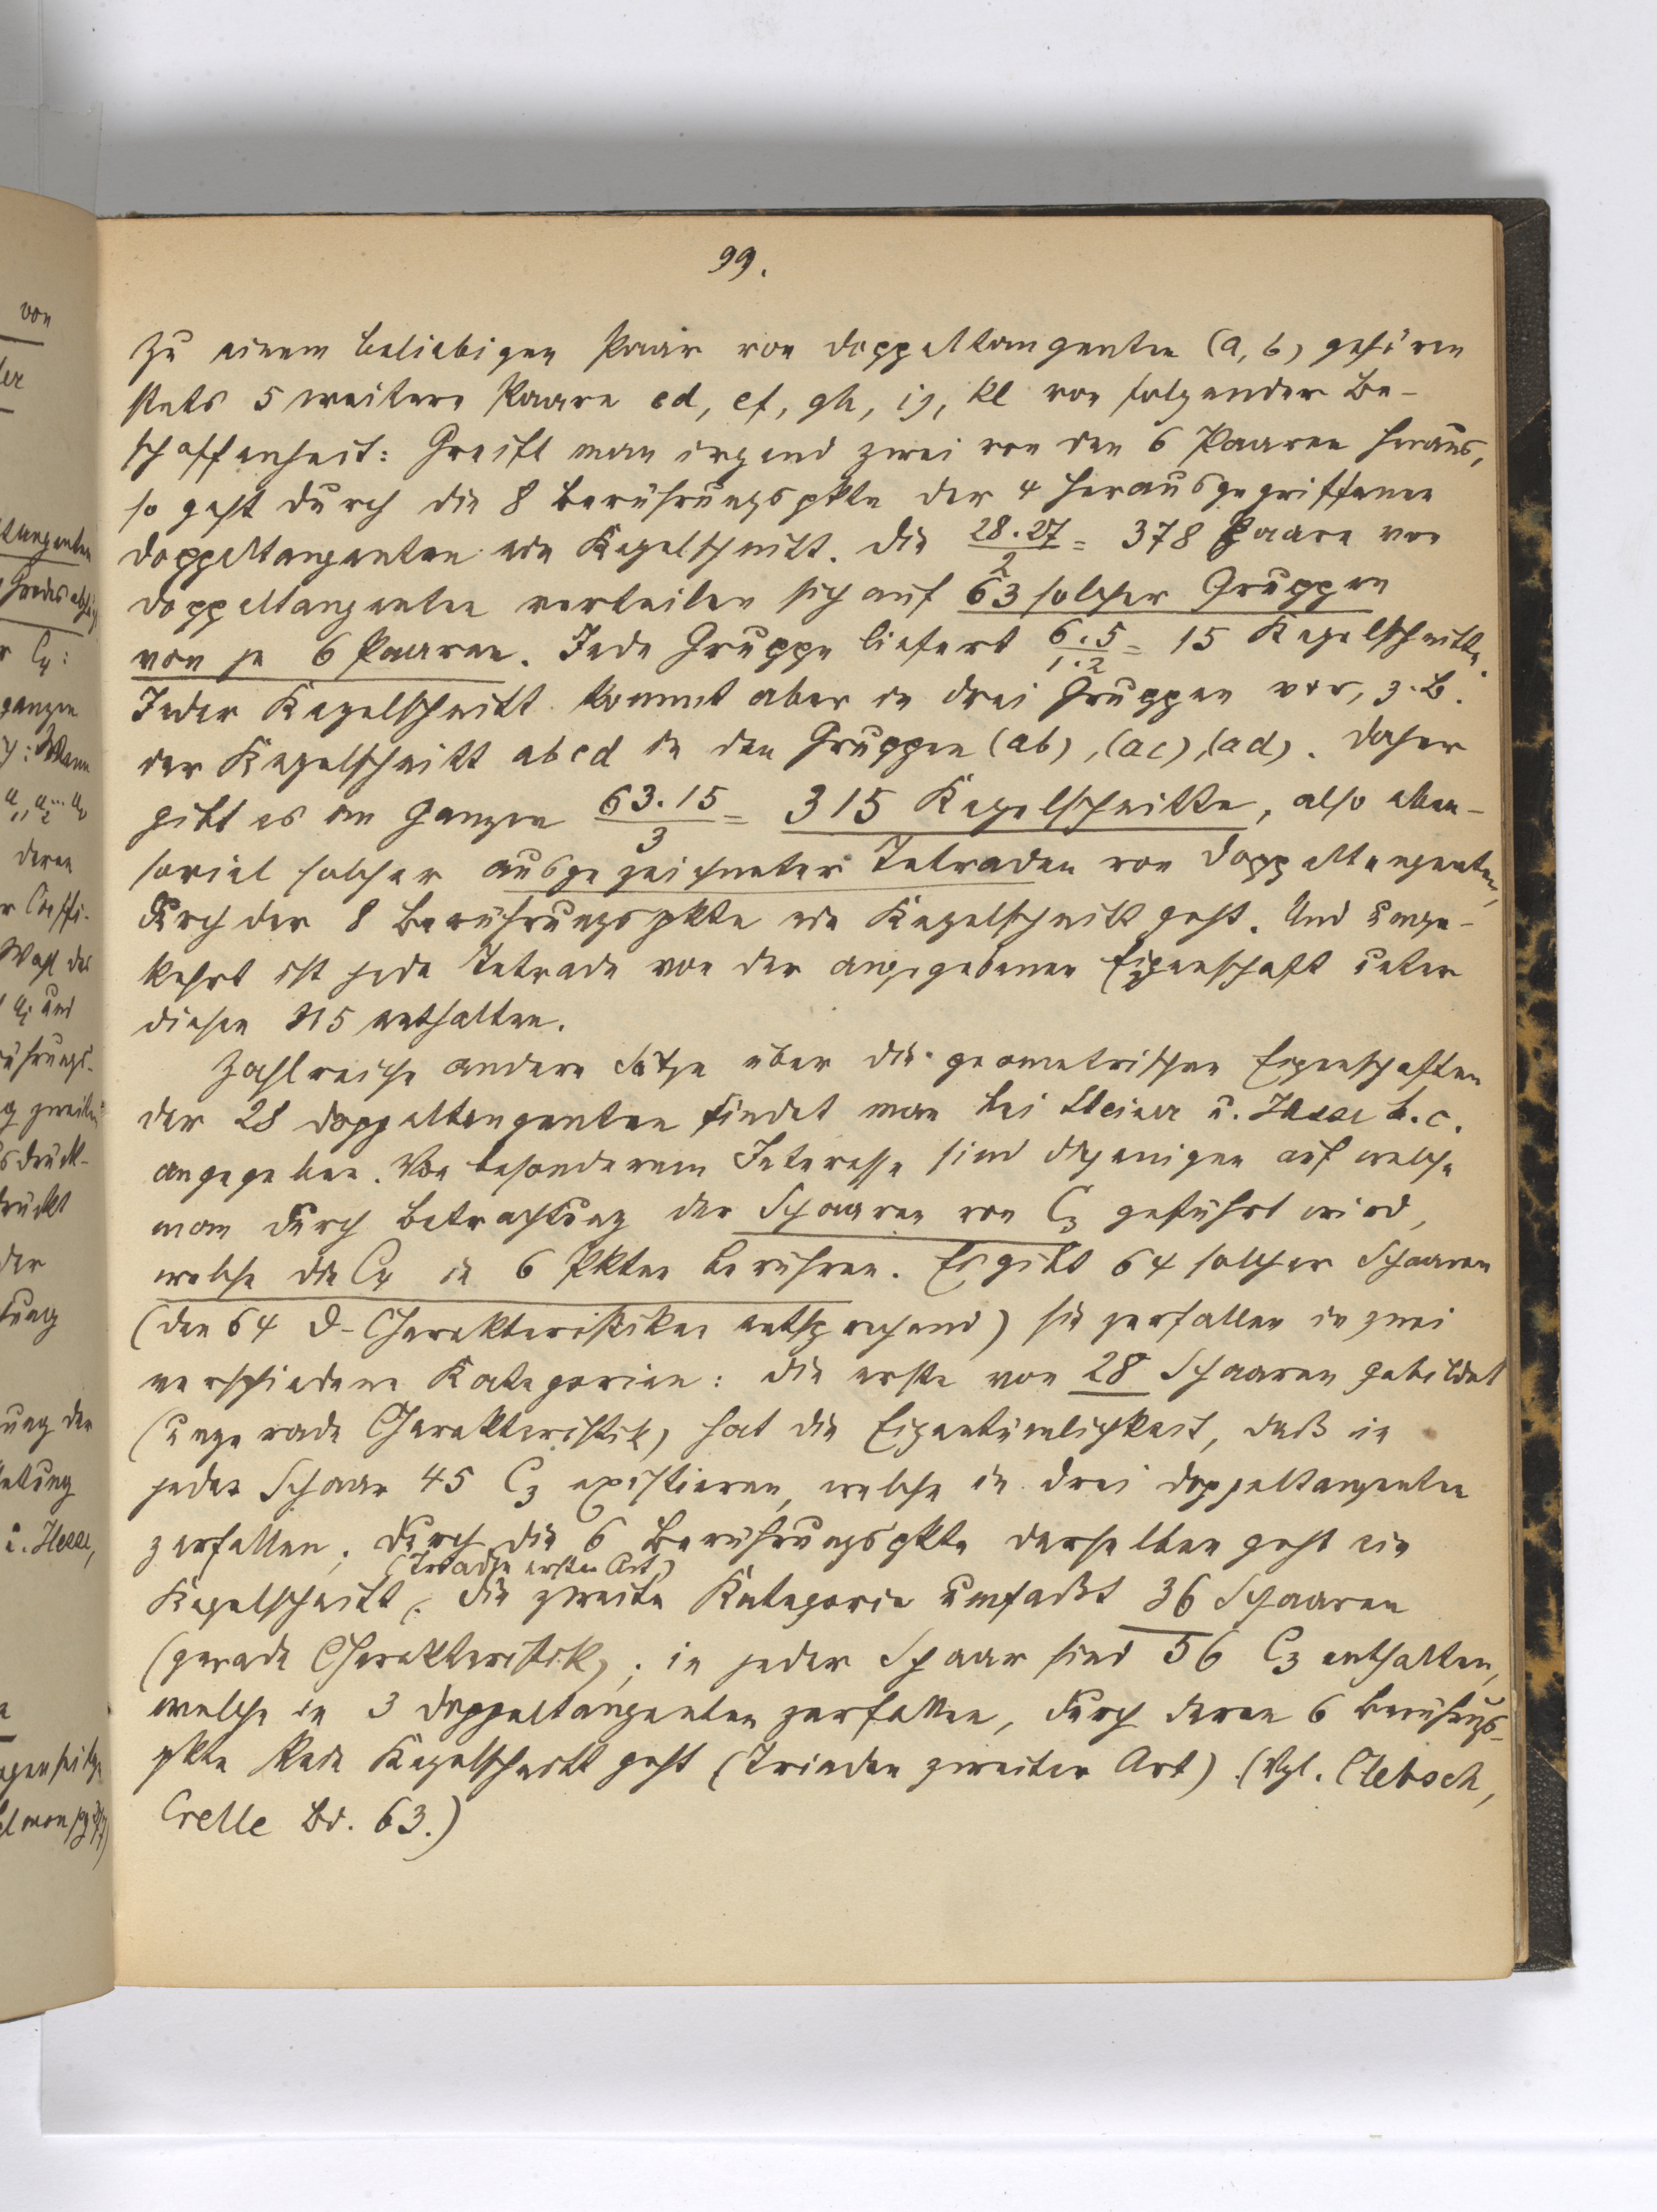 99.
Zu einem beliebigen Paar von Doppeltangenten (a, b) gehören
stets 5 weitere Paare cd, ef, gh, ij, kl von folgender Be-
schaffenheit: Greift man irgend zwei von den 6 Paaren heraus,
so geht durch die 8 Berührungspkte der 4 herausgegriffenen
Doppeltangenten ein Kegelschnitt. Die 28.27/2 = 378 Paare von
Doppeltangenten verteilen sich auf 63 solcher Gruppen
von je 6 Paaren. Jede Gruppe liefert 6.5/1.2 = 15 Kegelschnitte.
Jeder Kegelschnitt kommt aber in drei Gruppen vor, z.B.
der Kegelschnitt abcd in den Gruppen (ab), (ac), (ad). Daher
gibt es im Ganzen 63.15/3 = 315 Kegelschnitte, also eben-
soviel solcher ausgezeichneter Tetraden von Doppeltangenten,
durch der 8 Berührungspkte ein Kegelschnitt geht. Und umge-
kehrt ist jede Tetrade von der angegebenen Eigenschaft unter
diesen 315 enthalten.
Zahlreiche andere Sätze über die geometrischen Eigenschaften
der 28 Doppeltangenten findet man bei Steiner u. Hesse l.c.
angegeben. Von besonderem Interesse sind diejenigen auf welche
man durch Betrachtung der Schaaren von C3 geführt wird,
welche die C4 in 6 Pkten berühren. Es gibt 64 solcher Schaaren
(den 64 ϑ-Charakteristiken entsprechend) sie zerfallen in zwei
verschiedene Kategorien: die erste von 28 Schaaren gebildet
(ungerade Charakteristik) hat die Eigentümlichkeit, daß in
jeder Schaar 45 C3 existieren, welche in drei Doppeltangenten
zerfallen; durch die 6 Berührungspkte derselben geht ein
(Triaden erster Art)
Kegelschnitt. Die zweite Kategorie umfaßt 36 Schaaren
(gerade Charakteristik); in jeder Schaar sind 56 C3 enthalten,
welche in 3 Doppeltangenten zerfallen, durch deren 6 Berührgs-
pkte kein Kegelschnitt geht (Triaden zweiter Art) (Vgl. Clebsch,
Crelle Bd. 63.)